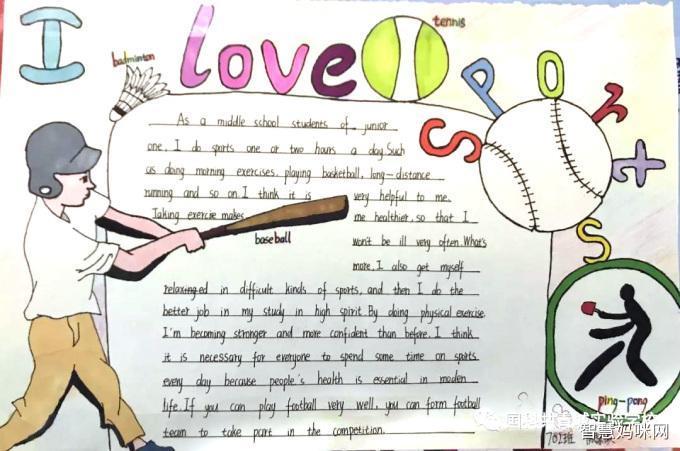 I love sports
tennis
badminton
As a middle school students of junior
one, I do sports one or two hours a day. Such
as doing morning exercises, playing basketball, long-distance
running and so on. I think it is very helpful to me.
Taking exercise makes me healthier, so that I
baseball
won't be ill very often. What's
more, I also get myself
relaxinged in difficult kinds of sports, and then I do the
better job in my study in high spirit. By doing physical exercise
I'm becoming stronger and more confident than before. I think
it is necessary for everyone to spend some time on sports
every day because people's health is essential in moden
life. If you can play football very well, you can form football
team to take part in the competition.
ping-pong
702班
智慧妈咪网